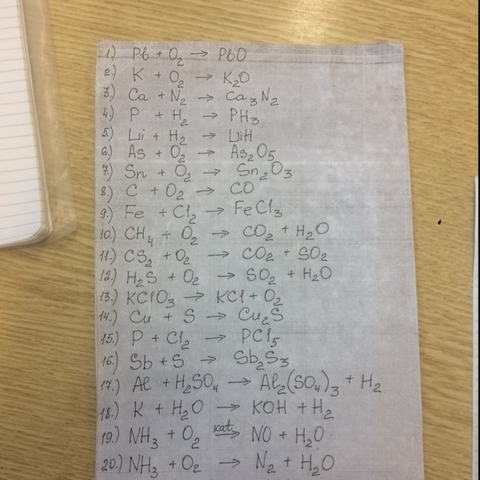 1.) Pb + O₂ → PbO
2.) K + O₂ → K₂O
3.) Ca + N₂ → Ca₃N₂
4.) P + H₂ → PH₃
5.) Lii + H₂ → LiiH
6.) As + O₂ → As₂O₅
7.) Sn + O₂ → Sn₂O₃
8.) C + O₂ → CO
9.) Fe + Cl₂ → FeCl₃
10.) CH₄ + O₂ → CO₂ + H₂O
11.) CS₂ + O₂ → CO₂ + SO₂
12.) H₂S + O₂ → SO₂ + H₂O
13.) KClO₃ → KCl + O₂
14.) Cu + S → Cu₂S
15.) P + Cl₂ → PCl₅
16.) Sb + S → Sb₂S₃
17.) Al + H₂SO₄ → Al₂(SO₄)₃ + H₂
18.) K + H₂O → KOH + H₂
19.) NH₃ + O₂ kat. → NO + H₂O
20.) NH₃ + O₂ → N₂ + H₂O